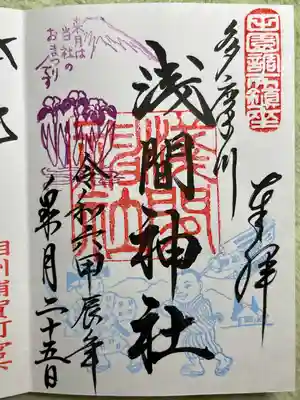 田園調布鎮座
奉拝
多摩川
浅間神社
令和六甲辰年
皐月二十五日
来月は
当社の
おまつり
です